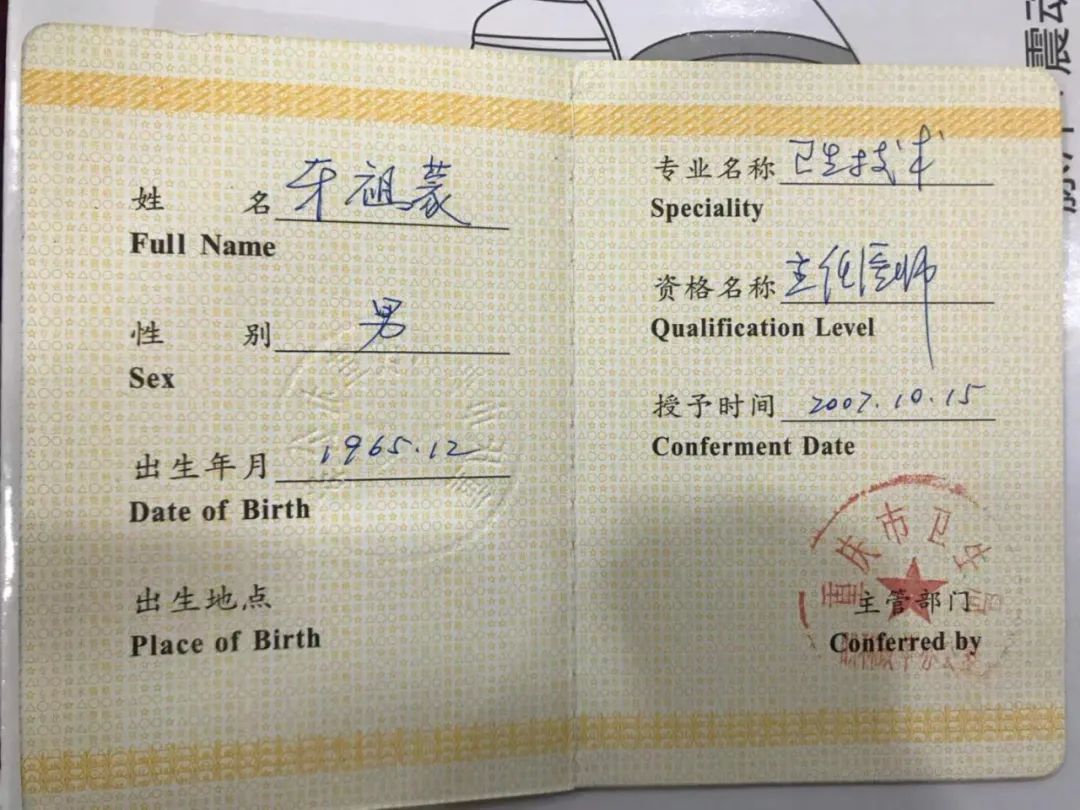 姓 名 牙祖蒙
Full Name
性 别 男
Sex
出生年月 1965.12
Date of Birth
出生地点
Place of Birth
专业名称 卫生技术
Speciality
资格名称 主任医师
Qualification Level
授予时间 2007.10.15
Conferment Date
重庆市卫生局
主管部门
Conferred by
震动